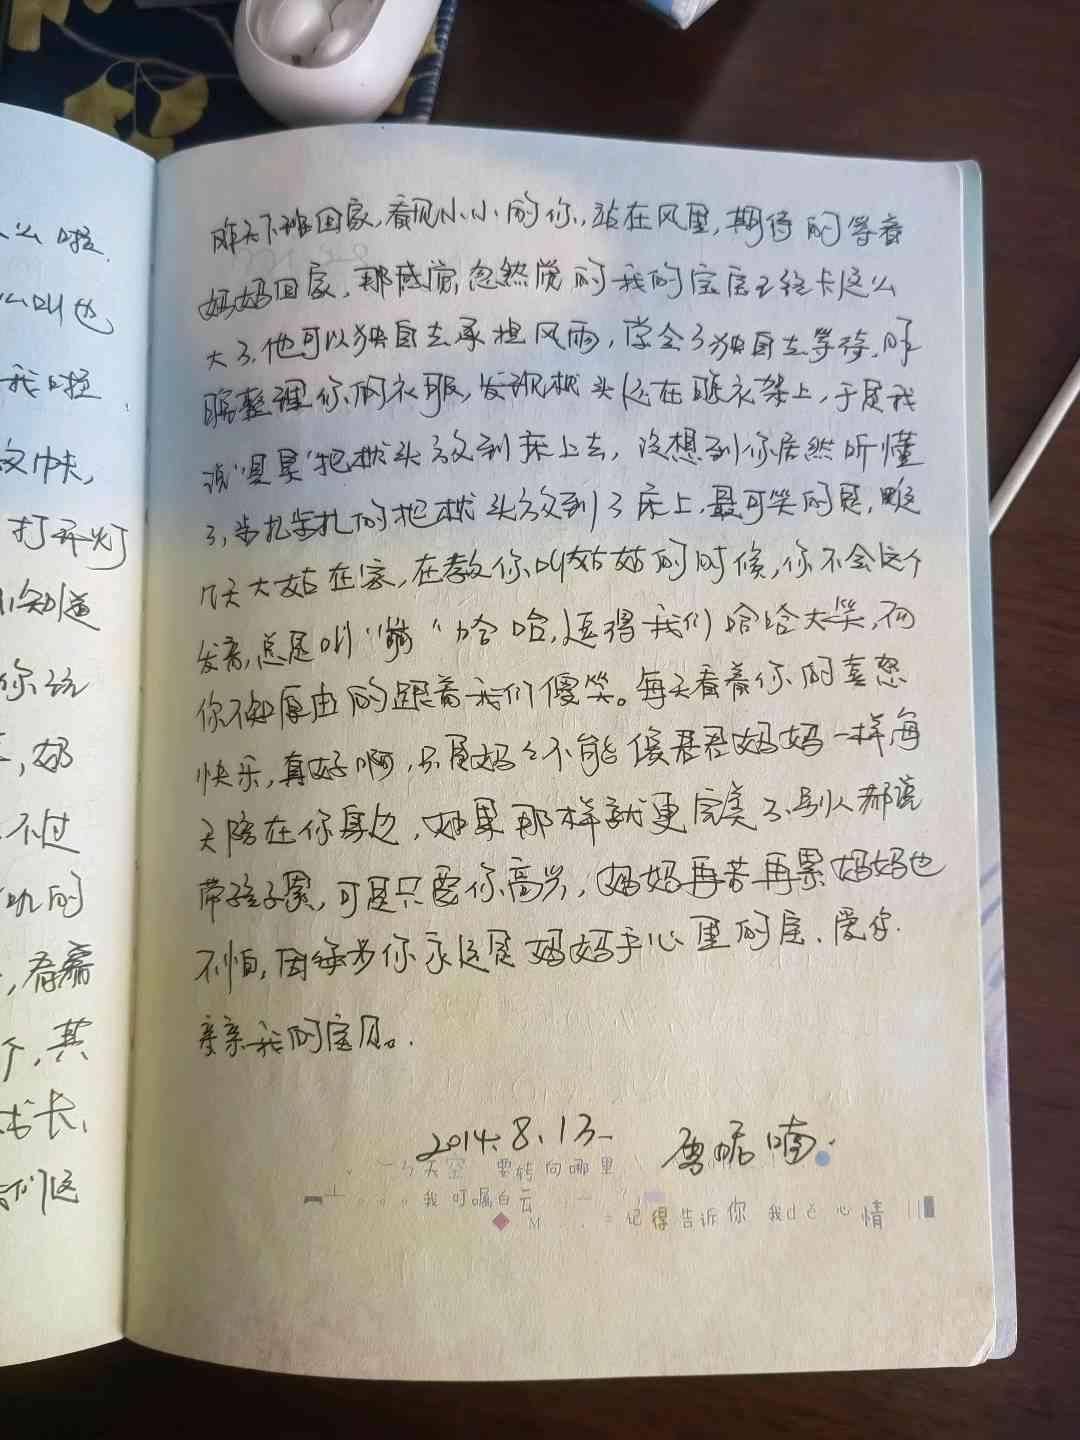 么啦.
么叫也
我啦.
打开灯
知道
你说
,奶
不过
叽的
,看
个,其
成长、
我们这
昨天下班回家,看见小小的你,站在风里,期待的等着
妈妈回家,那感觉,忽然觉的我的宝宝已经长这么
大了.他可以独自去承担风雨,学会了独自去等待.昨
晚整理你的衣服,发现枕头还在晾衣架上,于是我
说"昊昊"把枕头放到床上去,没想到你居然听懂
了,步扎步扎的把枕头放到了床上,最可笑的是,
几天大姑在家,在教你叫姑姑的时候,你不会这个
发音,总是叫" "哈哈,逗得我们哈哈大笑,而
你不知原由的跟着我们傻笑。每天看着你的喜怒
快乐,真好啊,只是妈々不能像君君妈妈一样,每
天陪在你身边,如果那样就更完美了.别人都说
带孩子累,可是只要你高兴,妈妈再苦再累妈妈也
不怕,因 你永远是妈妈手心里的宝、爱你.
亲亲我的宝贝。.
2014.8.13.
天空 要转向哪里
我叮嘱白云
记得告诉你 我dě心情